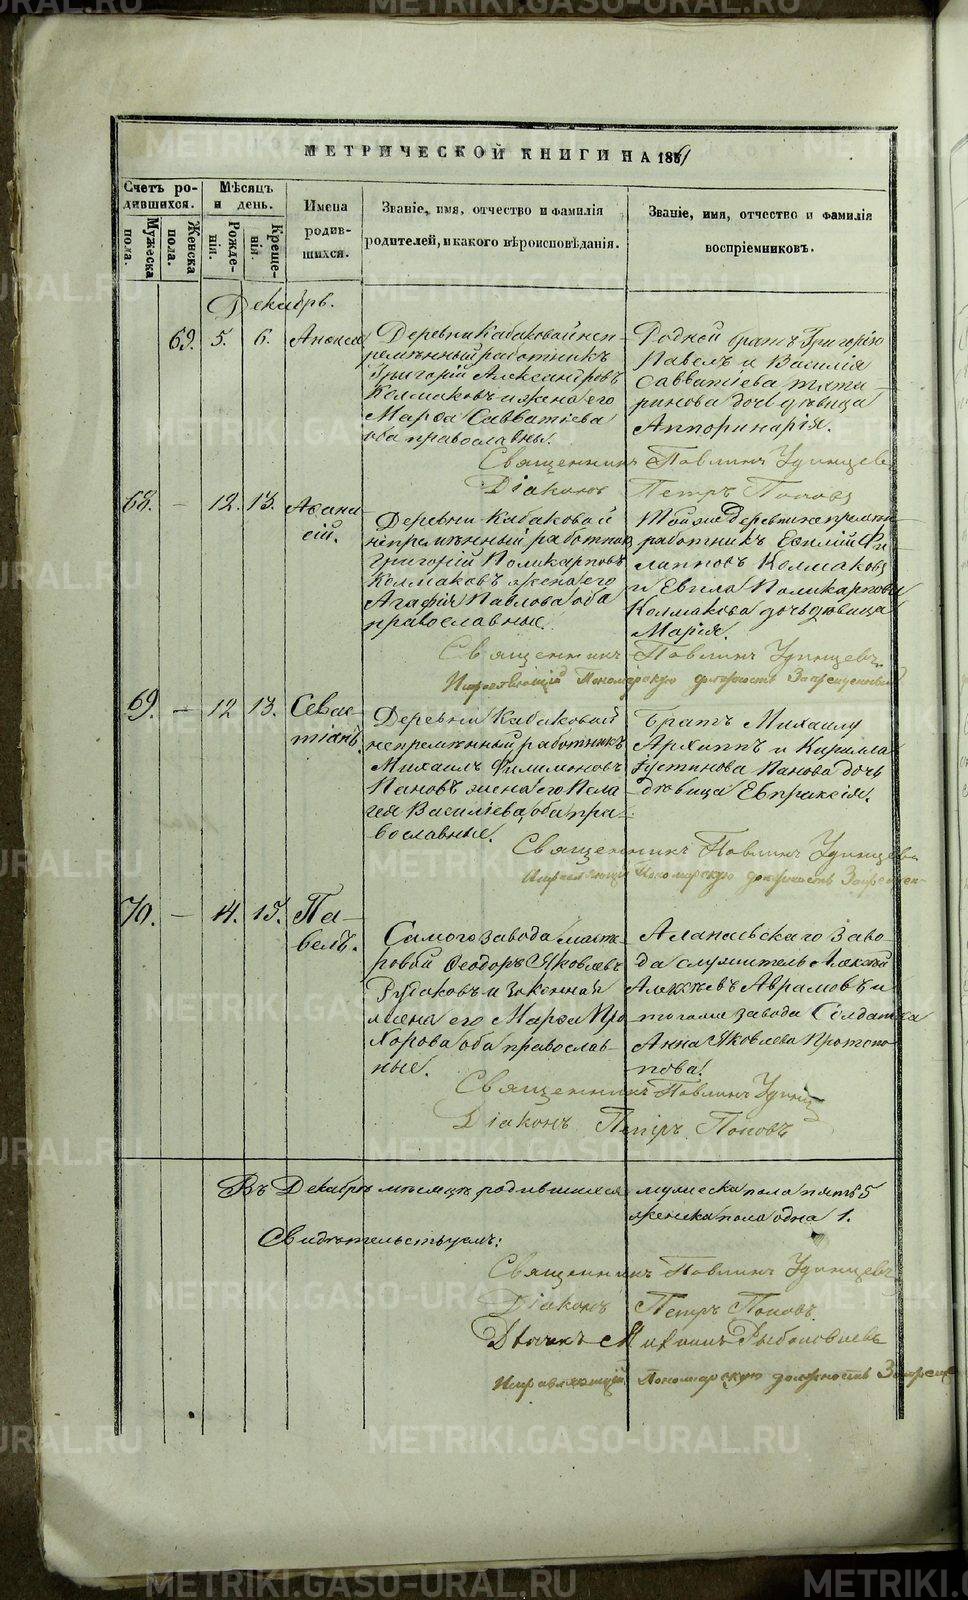 МЕТРИЧЕСКОЙ КНИГИ НА 1859
Счетъ родившихся.
Мужеска пола.
Женска пола.
Мѣсяцъ и день.
Рожденія.
Крещенія.
Имена родившихся.
Званіе, имя, отчество и фамилія
родителей, и какого вѣроисповѣданія.
Званіе, имя, отчество и фамилія
воспріемниковъ.
Декабрь.
69. 5. 6.
Деревни Кабаковой неп
ремѣнный работникъ
Григорій Александровъ
Колмаковъ и жена его
Марѳа Савватіева
оба православны.
Родной братъ Григорію
Павелъ и Василія
Савватіева
дочь дѣвица
Апполинарія.
Священникъ Павлинъ Удинцевъ
Діаконъ Петръ Поповъ
68. — 12. 13. Аѳана
сій.
Деревни Кабаковой
непремѣнный работникъ
Григорій Поликарповъ
Колмаковъ жена его
Агафія Павлова оба
православные.
Тойже деревни непремѣн
работникъ Фи
липповъ Колмаковъ
и Поликарпова
Колмакова дочь дѣвица
Марія.
Священникъ Павлинъ Удинцевъ
Исправляющій Пономарскую должность
69. — 12 13. Севас
тіанъ.
Деревни Кабаковой
непремѣнный работникъ
Михаилъ Филимоновъ
Пановъ жена его Пела
гея Василіева, оба пра
вославные.
Братъ Михаилу
Архиппъ и Кирилла
Густинова Панова дочь
дѣвица Евпраксія.
Священникъ Павлинъ Удинцевъ
Исправляющій Пономарскую должность
70. — 14. 15. Па-
велъ.
Самого завода масте
ровой Ѳеодоръ Яковлевъ
Рудаковъ и законная
жена его Марѳа Про
хорова оба православ-
ные.
Алапаевскаго заво-
да служитель Алексѣй
Алексѣевъ Аврамовъ и
тогоже завода Солдатка
Анна Яковлева Протопо
пова.
Священникъ Павлинъ Удинц
Діаконъ Петръ Поповъ
Въ Декабрѣ мѣсяцѣ родившихся мужеска пола пять 5
женска пола одна 1.
Свидѣтельствуемъ:
Священникъ Павлинъ Удинцевъ
Діаконъ Петръ Поповъ
Дьячекъ Рыболовлевъ
Исправляющій Пономарскую должность
METRIKI.GASO-URAL.RU